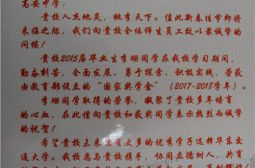 高安中学：
贵校人杰地灵，桃李天下。值此新春佳节即将
来临之际，我们向贵校全体师生员工致以最诚挚的
问候！
贵校2015届毕业生李珊同学在我校学习期间，
勤奋刻苦，全面发展，勇于探索，积极实践，荣获
由教育部设立的“国家奖学金”（2017-2018学年）。
李珊同学取得的荣誉，凝聚了贵校多年培育
的心血，在此特向贵校和获奖同学表示热烈而诚挚
的祝贺！
希望贵校未来有更多的优秀学子选择华东交
通大学。我校愿与贵校携手，协同立德树人，共育